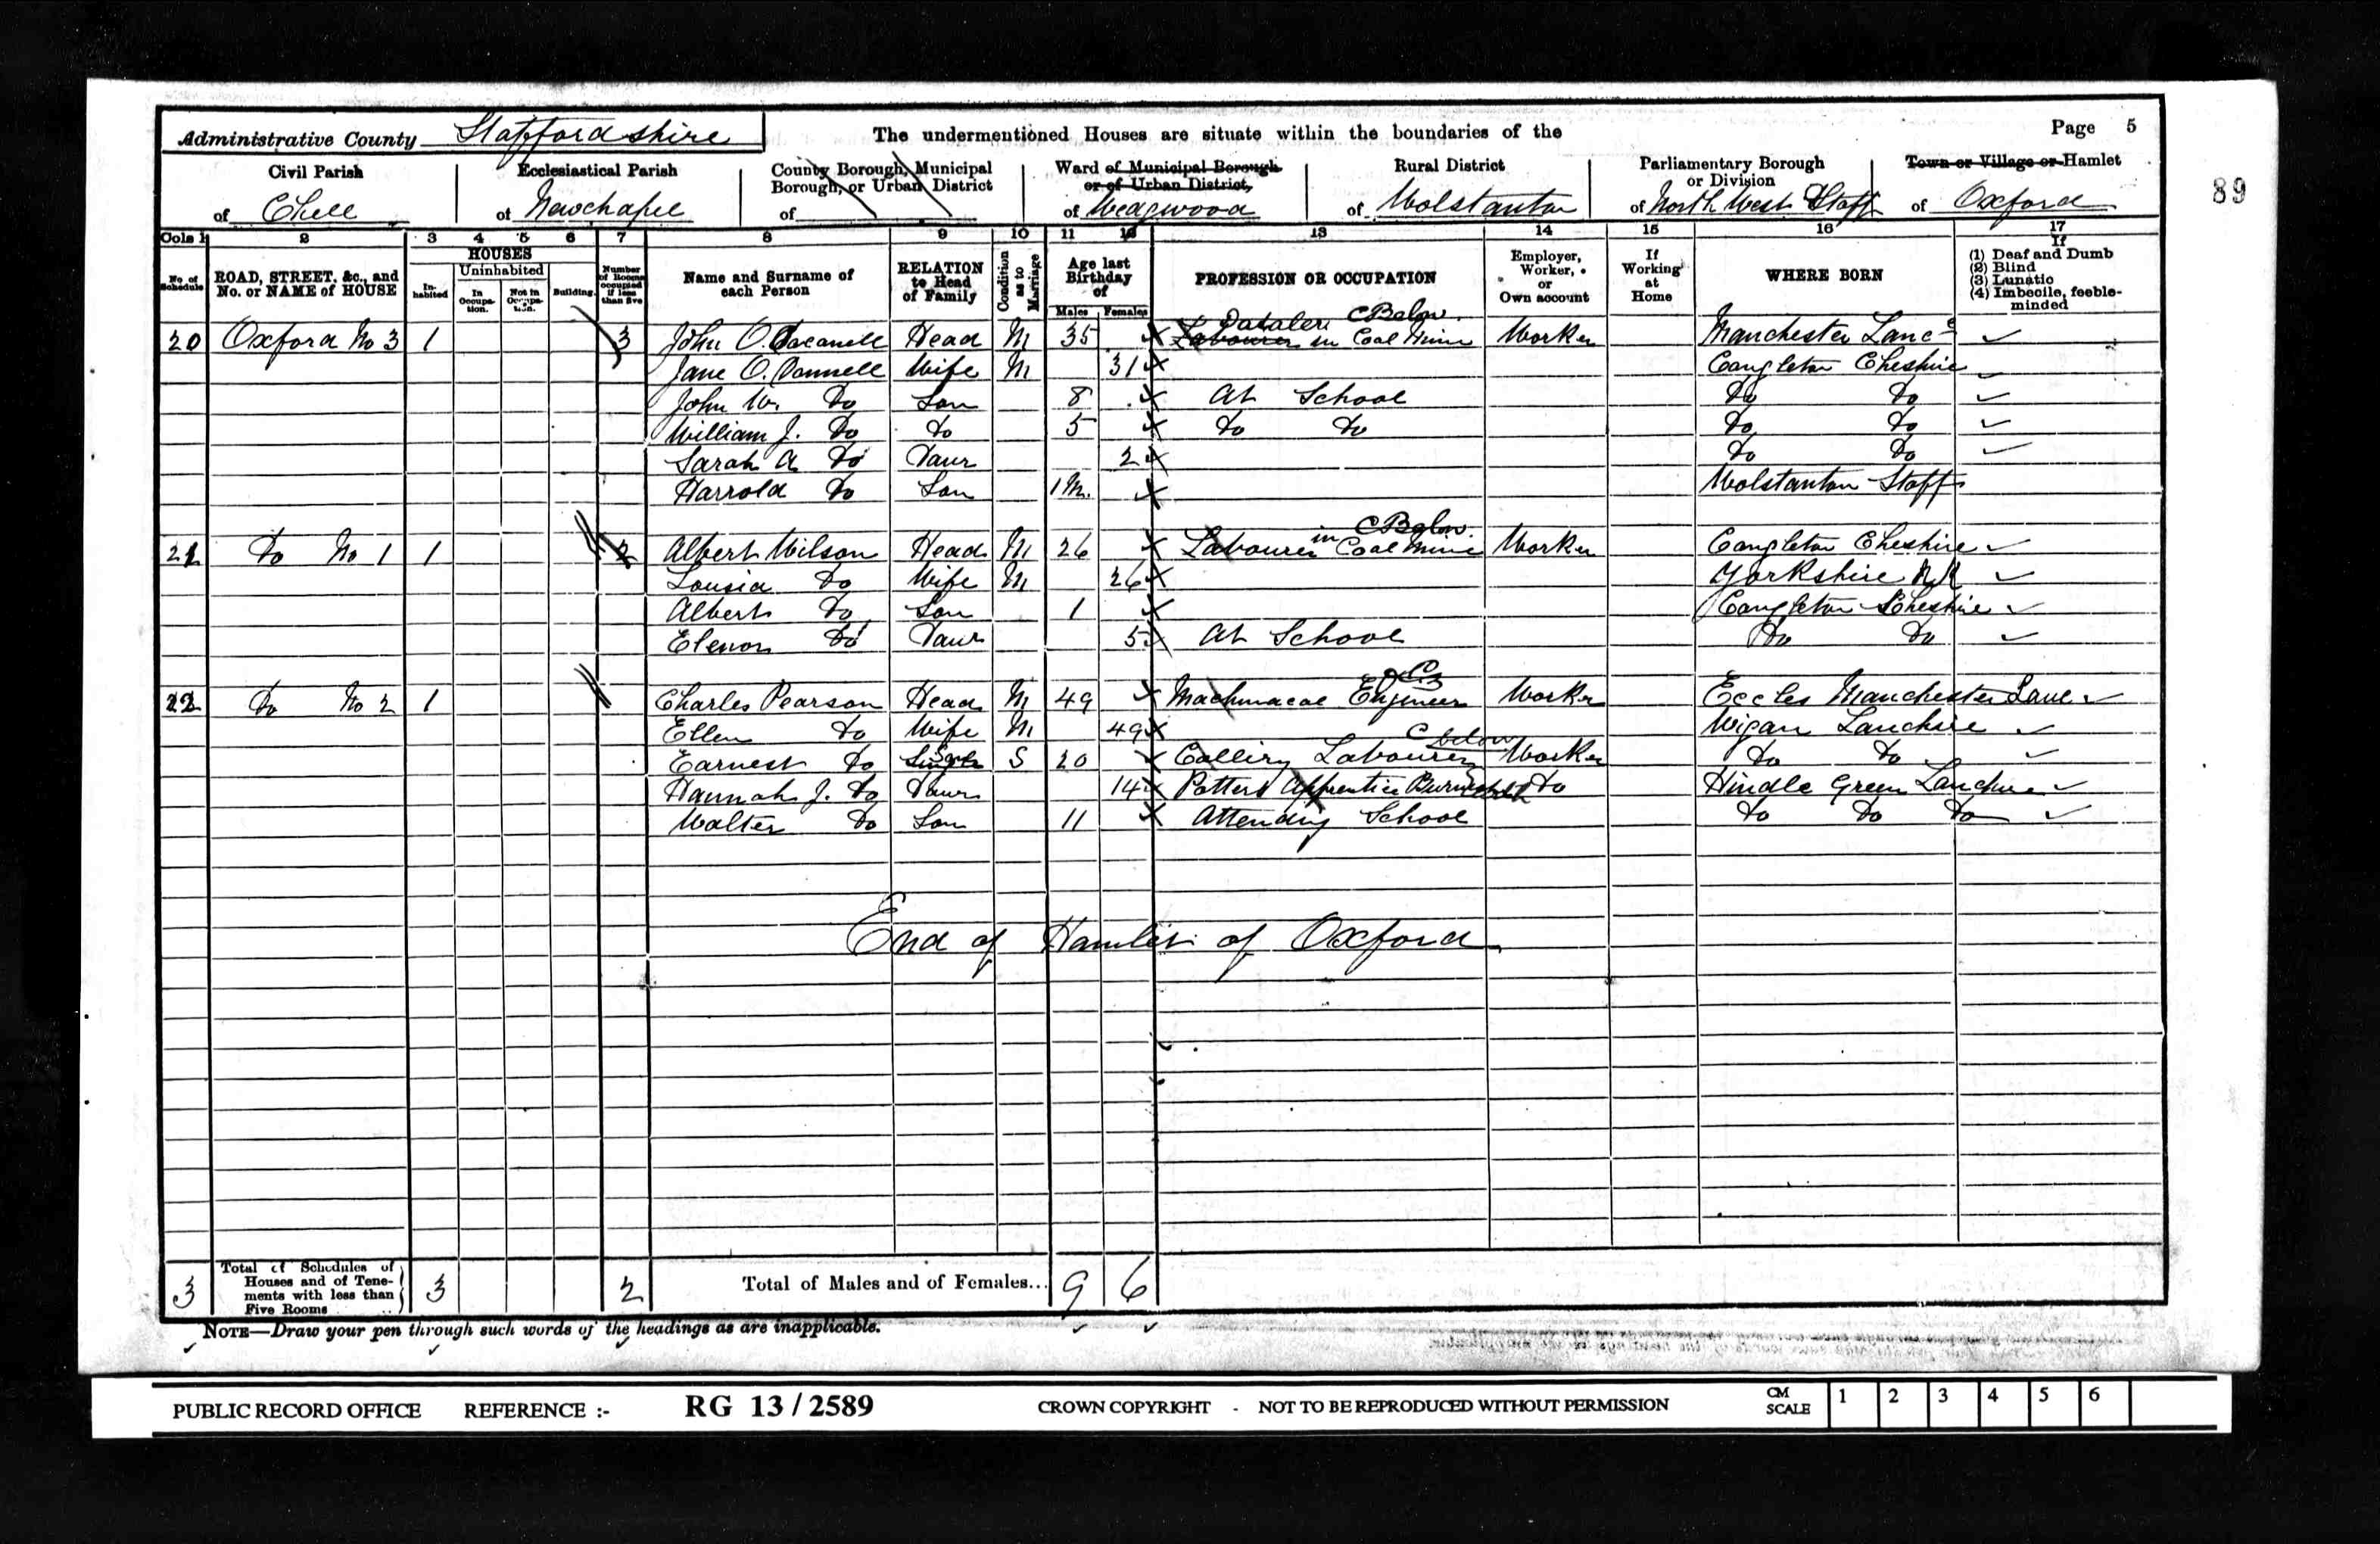 Administrative County Staffordshire The undermentioned Houses are situate within the boundaries of the Page 5
Civil Parish of Chell
Ecclesiastical Parish of Newchapel
County Borough, Municipal Borough, or Urban District of
Ward of Municipal Borough or of Urban District, of Wedgwood
Rural District of Wolstanton
Parliamentary Borough or Division of North West Staff
Town or Village or Hamlet of Oxford
89
Cols 1 2 3 4 5 6 7 8 9 10 11 12 13 14 15 16 17
No. of Schedule
ROAD, STREET, &c., and No. or NAME of HOUSE
HOUSES
Inhabited
Uninhabited
In Occupation.
Not in Occupation.
Building.
Number of Rooms occupied if less than five
Name and Surname of each Person
RELATION to Head of Family
Condition as to Marriage
Age last Birthday of
Males Females
PROFESSION OR OCCUPATION
Employer, Worker, or Own account
If Working at Home
WHERE BORN
If
(1) Deaf and Dumb
(2) Blind
(3) Lunatic
(4) Imbecile, feeble-minded
Dataler C Below
20 Oxford No 3 1 3 John O. Head M 35 Labourer in Coal Mine Worker Manchester Lanc
Jane O. Connell Wife M 31 Congleton Cheshire
John W. Do Son 8 At School Do Do
William J. Do Do 5 Do Do Do Do
Sarah A Do Daur 2 Do Do
Harrold Do Son 1M. Wolstanton Staff
C Below
21 Do No 1 1 2 Albert Wilson Head M 26 Labourer in Coal Mine Worker Congleton Cheshire
Lousia Do Wife M 26 Yorkshire NK
Albert Do Son 1 Congleton Cheshire
Elenor Do Daur 5 At School Do Do
22 Do No 2 1 Charles Pearson Head M 49 Machnacal Engineer Worker Eccles Manchester Lanc
Ellen Do Wife M 49 Wigan Lanchire
C below
Earnest Do Son S 20 Colliery Labourer Worker Do Do
Hannah J. Do Daur 14 Potters Apprentice Do Hindle Green Lanchire
Walter Do Son 11 Attending School Do Do Do
End of Hamlet of Oxford
3 Total of Schedules of Houses and of Tenements with less than Five Rooms 3 2 Total of Males and of Females... 9 6
NOTE—Draw your pen through such words of the headings as are inapplicable.
PUBLIC RECORD OFFICE REFERENCE :- RG 13 / 2589 CROWN COPYRIGHT - NOT TO BE REPRODUCED WITHOUT PERMISSION CM SCALE 1 2 3 4 5 6